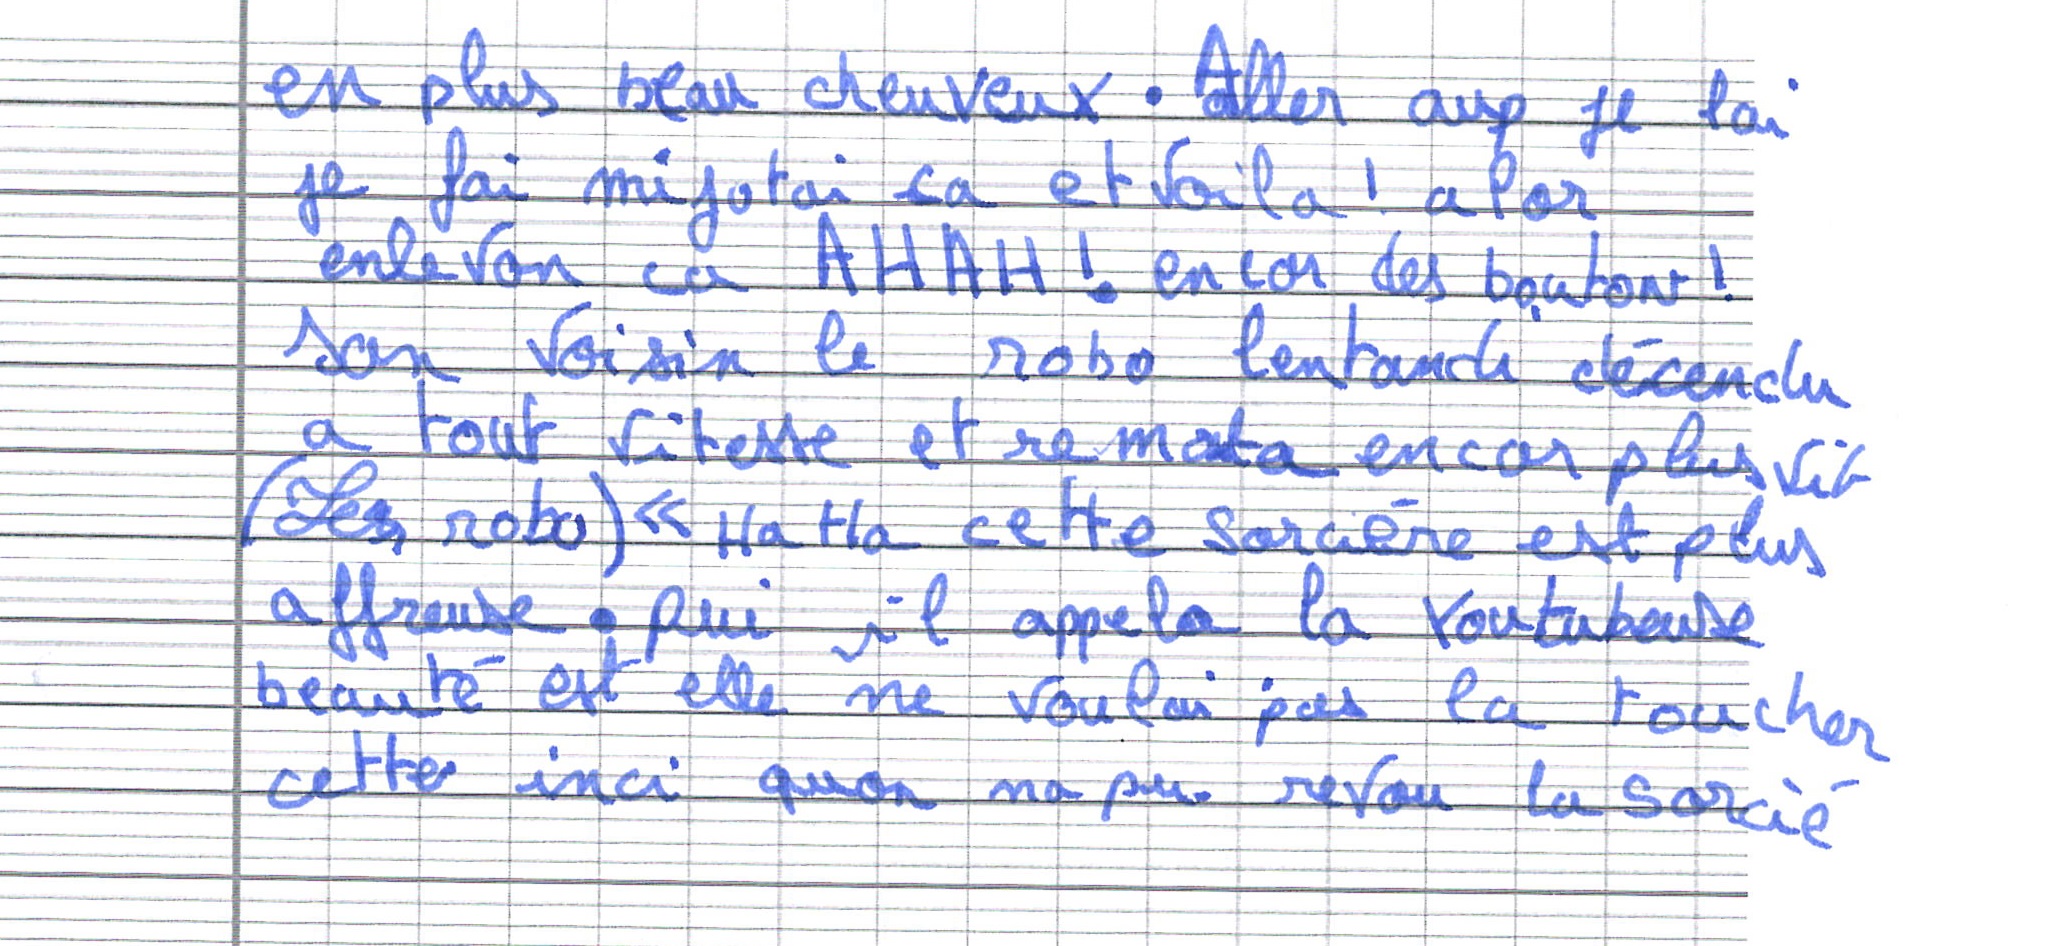 en plus beau cheuveux. Aller aup je lai
je fai mijotai ca et voila! alor
enlevon ca AHAH! encor des bouton!
son voisin le robo lentandi décendu
a tout vitesse et remata encor plus vit
(Les robo) « HaHa cette sorcière est plus
affreuse. pui il appela la youtubeuse
beauté est elle ne voulai pas la toucher
cette inci quon na pu revou la sorciè